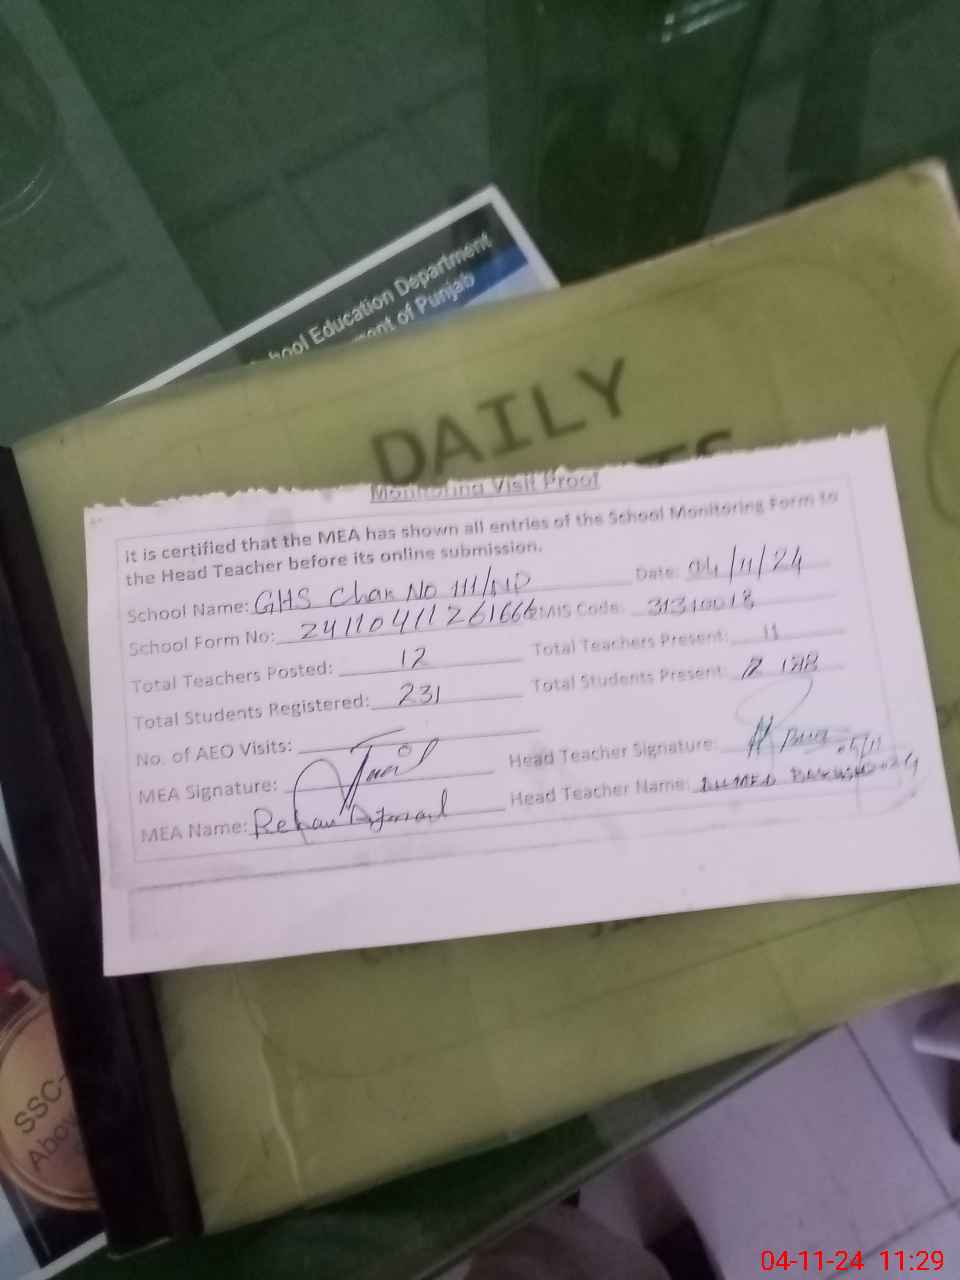 hool Education Department
ment of Punjab
DAILY
Monitoring Visit Proof
It is certified that the MEA has shown all entries of the School Monitoring Form to
the Head Teacher before its online submission.
School Name: GHS Chak No 111/NP Date: 04/11/24
School Form No: 24110411261666 EMIS Code: 31310018
Total Teachers Posted: 12 Total Teachers Present: 11
Total Students Registered: 231 Total Students Present: 188
No. of AEO Visits:
MEA Signature: Head Teacher Signature:
MEA Name: Rehan Head Teacher Name:
SSC-
Abov
04-11-24 11:29